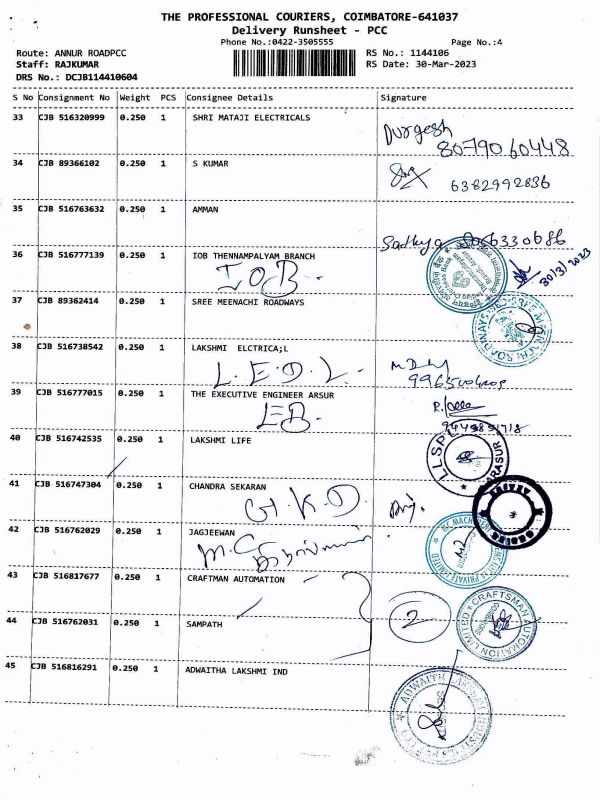 THE PROFESSIONAL COURIERS, COIMBATORE-641037
Delivery Runsheet - PCC
Phone No.:0422-3505555 Page No.:4
Route: ANNUR ROADPCC RS No.: 1144106
Staff: RAJKUMAR RS Date: 30-Mar-2023
DRS No.: DCJB114410604
S No Consignment No Weight PCS Consignee Details Signature
33 CJB 516320999 0.250 1 SHRI MATAJI ELECTRICALS
Durgesh
8079060448
34 CJB 89366102 0.250 1 S KUMAR
6382992836
35 CJB 516763632 0.250 1 AMMAN
Sadhya
36 CJB 516777139 0.250 1 IOB THENNAMPALYAM BRANCH
IOB
30/3/2023
37 CJB 89362414 0.250 1 SREE MEENACHI ROADWAYS
38 CJB 516738542 0.250 1 LAKSHMI ELCTRICA;L
L.E.D.L.
39 CJB 516777015 0.250 1 THE EXECUTIVE ENGINEER ARSUR
EB
40 CJB 516742535 0.250 1 LAKSHMI LIFE
41 CJB 516747304 0.250 1 CHANDRA SEKARAN
G.K.D.
42 CJB 516762029 0.250 1 JAGJEEWAN
M.C
43 CJB 516817677 0.250 1 CRAFTMAN AUTOMATION
2
CRAFTSMAN AUTOMATION LIMITED
44 CJB 516762031 0.250 1 SAMPATH
45 CJB 516816291 0.250 1 ADWAITHA LAKSHMI IND